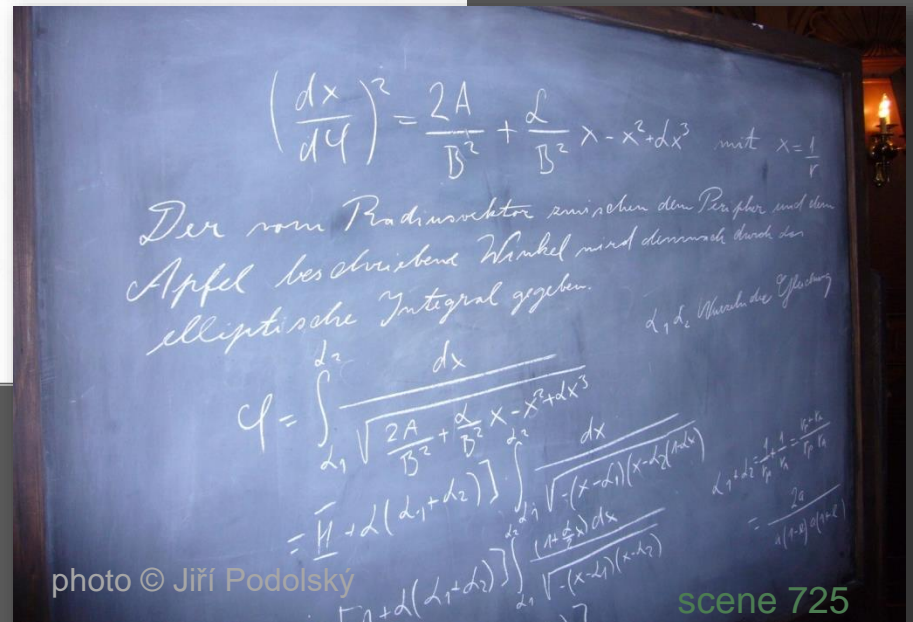 (dx/dφ)² = 2A/B² + α/B² x - x² + αx³ mit x = 1/r
Der vom Radiusvektor zwischen dem Periphel und dem
Apfel beschriebene Winkel wird demnach durch das
elliptische Integral gegeben.
α₁ α₂ Wurzeln der Gleichung
φ = ∫_{α₁}^{α₂} dx / √(2A/B² + α/B² x - x² + αx³)
= [1 + α(α₁+α₂)] ∫_{α₁}^{α₂} dx / √(-(x-α₁)(x-α₂)(1-αx))
α₁+α₂ = 1/rₚ + 1/rₐ = rₚ+rₐ / rₚ rₐ
= 2a / a(1-e) a(1+e)
[1 + α(α₁+α₂)] ∫_{α₁}^{α₂} (1 + α/2 x) dx / √(-(x-α₁)(x-α₂))
photo © Jiří Podolský
scene 725